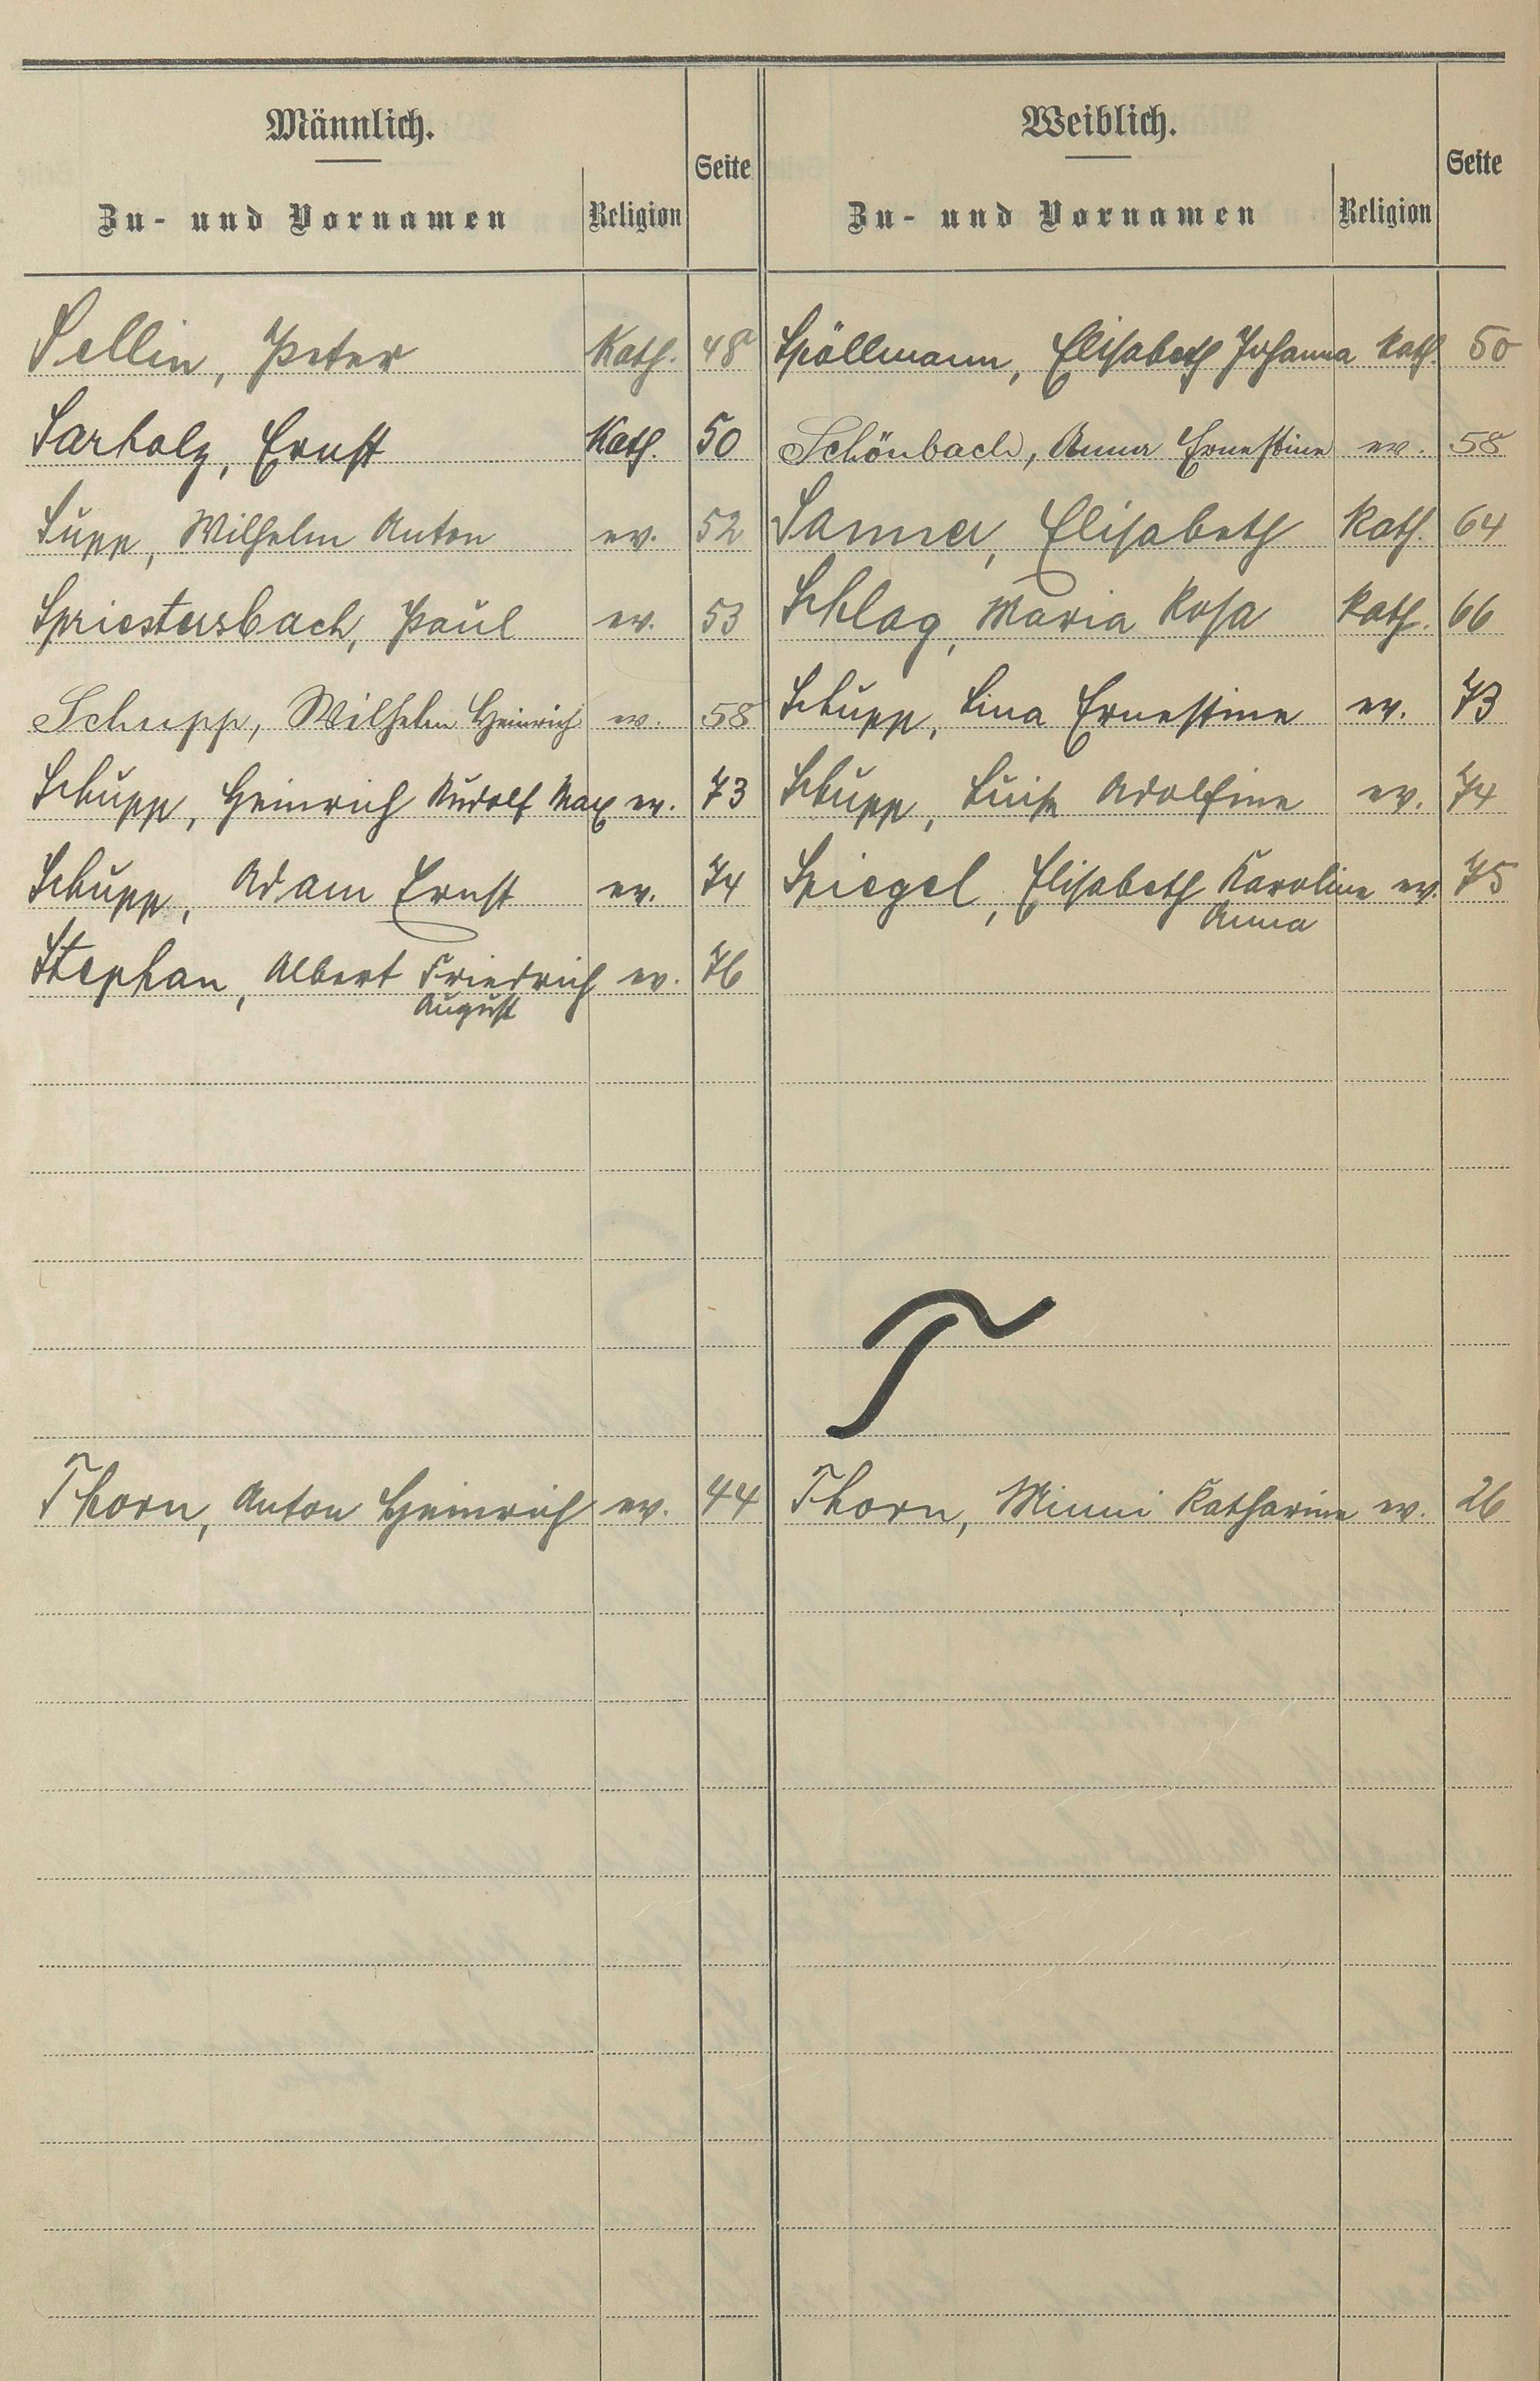 Männlich.
Zu- und Vornamen Religion Seite
Sellin, Peter Kath. 48
Sarholz, Ernst Kath. 50
Supp, Wilhelm Anton ev. 52
Spriestersbach, Paul ev. 53
Schupp, Wilhelm Heinrich ev. 58
Schupp, Heinrich Rudolf Max ev. 73
Schupp, Adam Ernst ev. 74
Stephan, Albert Friedrich ev. 76
August
Thorn, Anton Heinrich ev. 44
Weiblich.
Zu- und Vornamen Religion Seite
Spöllmann, Elisabeth Johanna kath. 50
Schönbach, Anna Ernestine ev. 58
Sanner, Elisabeth kath. 64
Schlag, Maria Rosa kath. 66
Schupp, Lina Ernestine ev. 73
Schupp, Luise Adolfine ev. 74
Spiegel, Elisabeth Karoline ev. 75
Anna
T
Thorn, Minni Katharina ev. 26